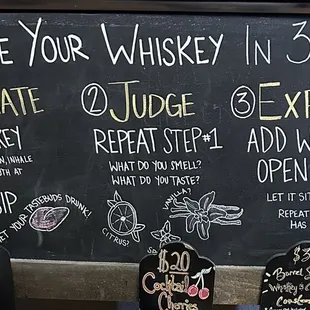 E YOUR WHISKEY IN 3
ATE
KEY
N, INHALE
TH AT
SIP
GET YOUR TASTEBUDS DRUNK!
② JUDGE
REPEAT STEP #1
WHAT DO YOU SMELL?
WHAT DO YOU TASTE?
CITRUS?
VANILLA?
③ EXP
ADD W
OPEN
LET IT SIT
REPEAT
HAS
$20
Cocktail
Cherries
$3
Barrel S
Whiskey